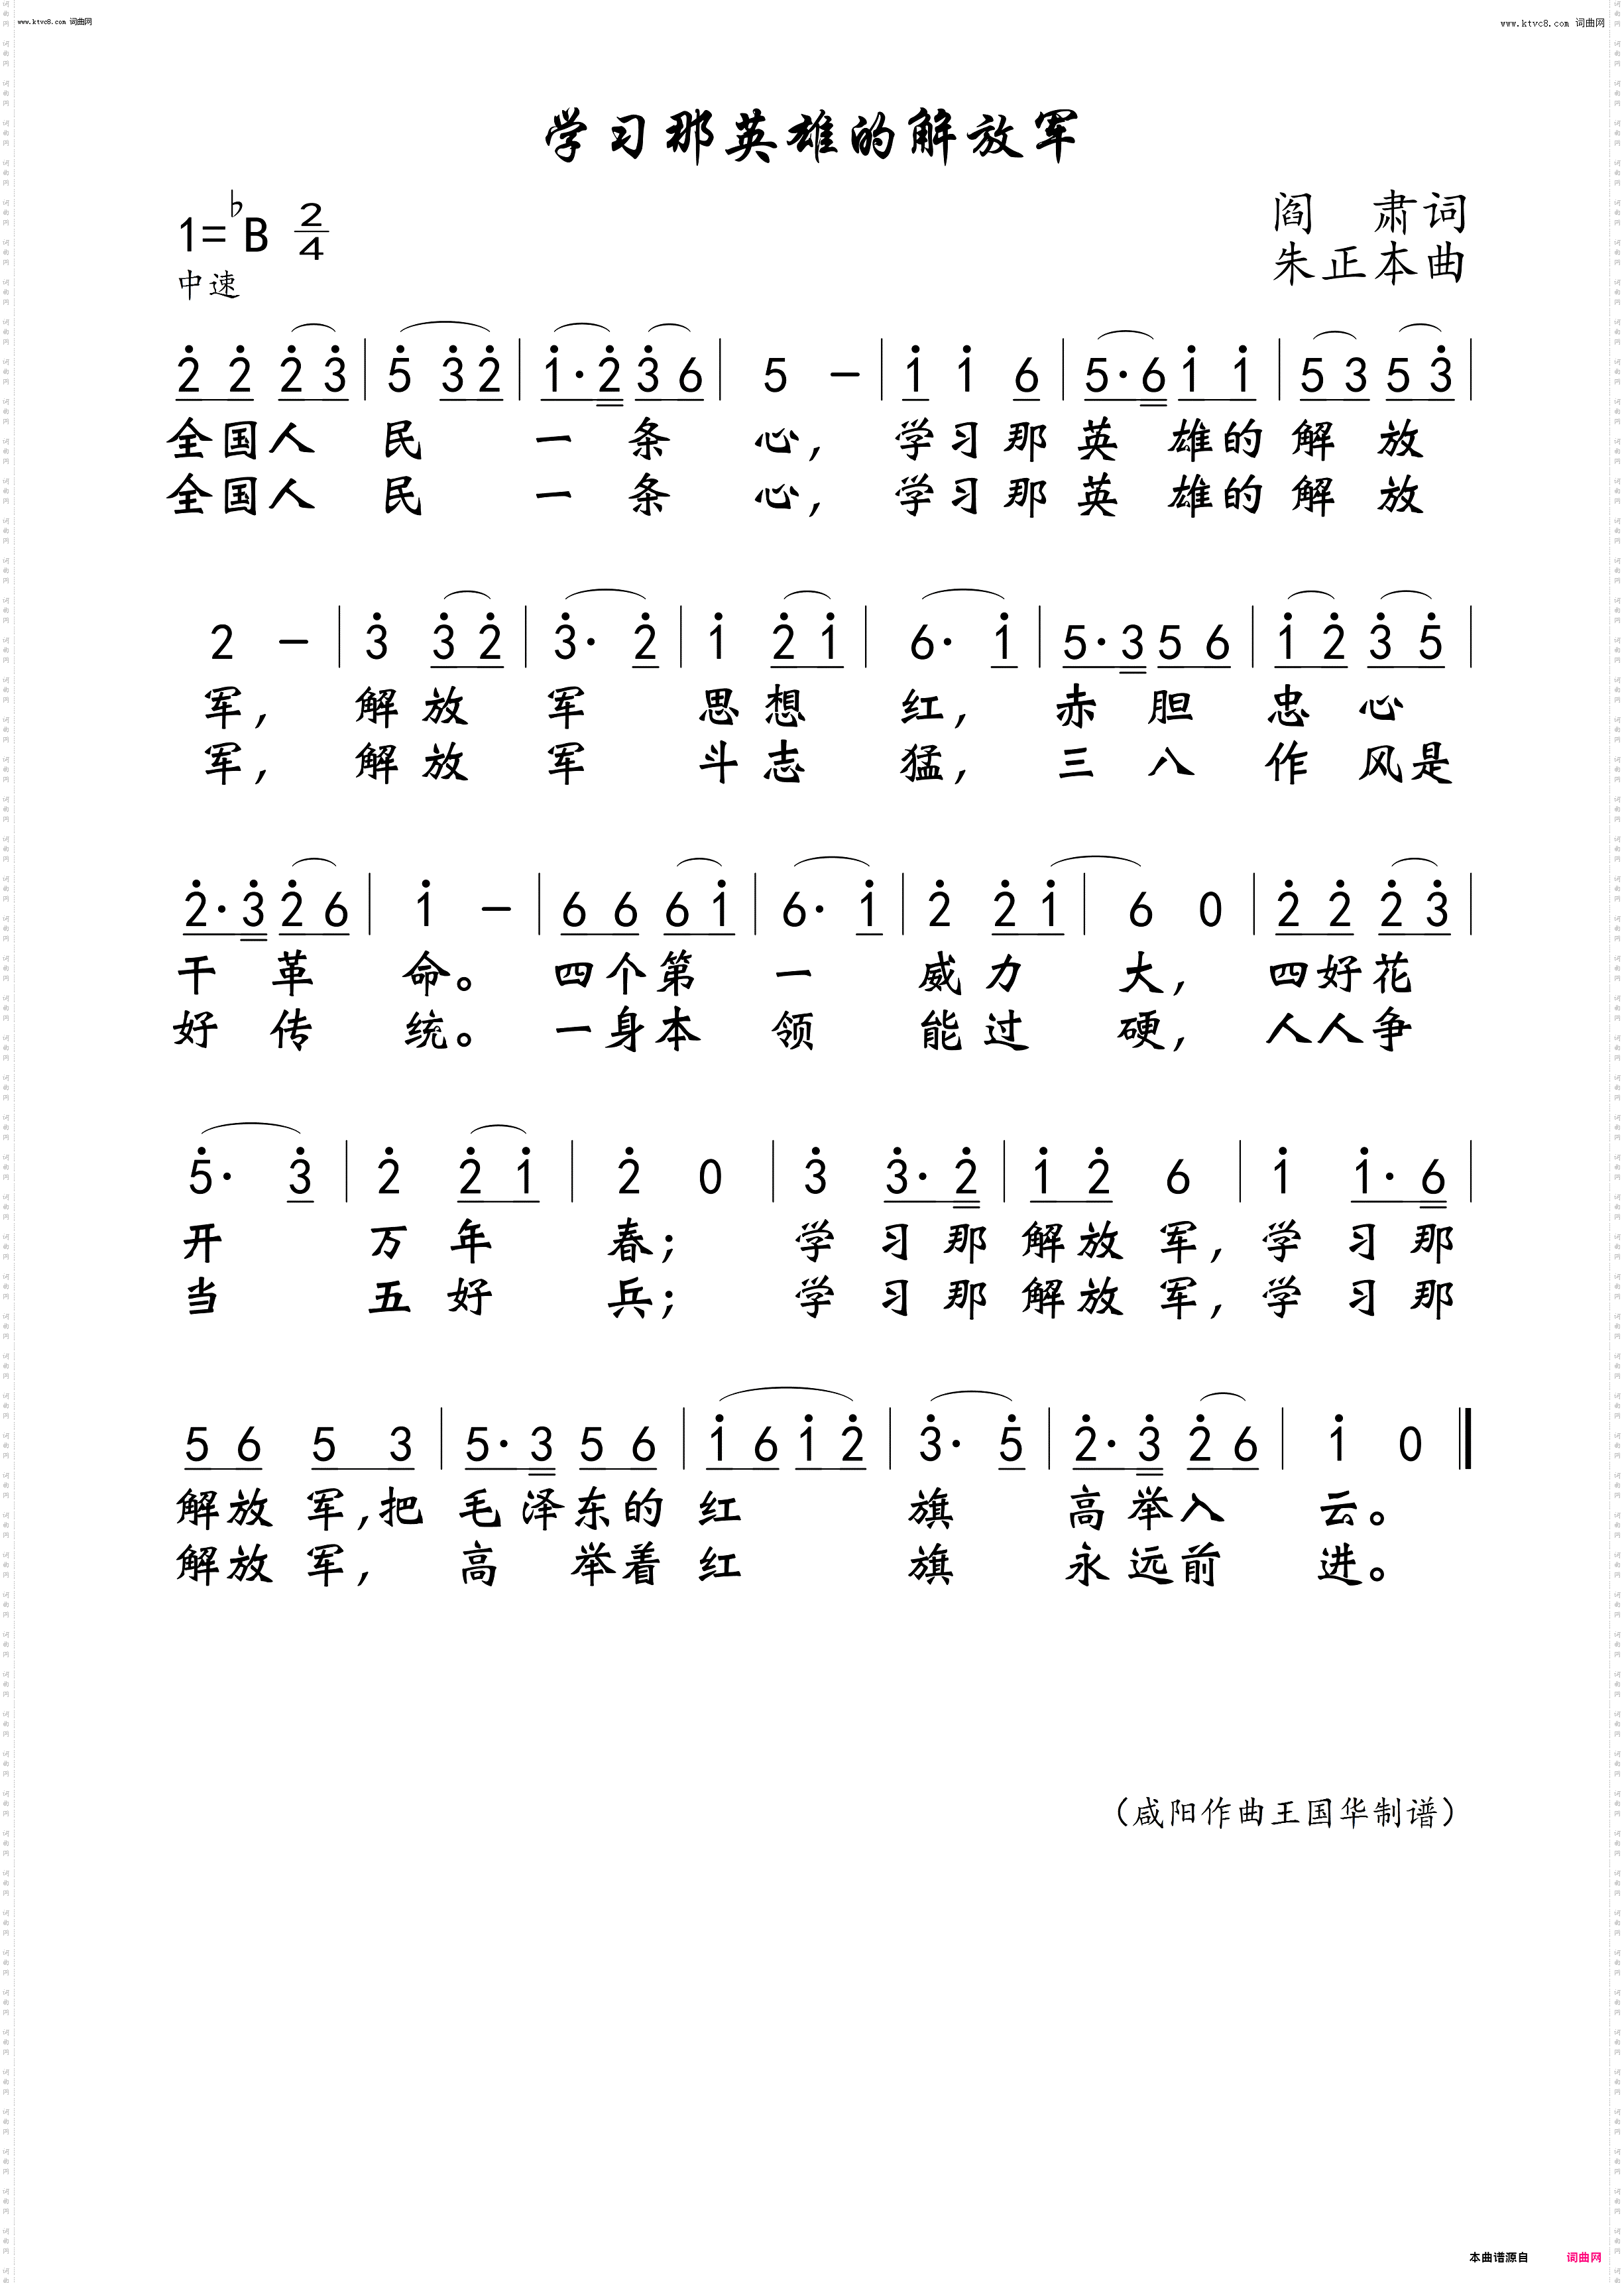 www.ktvc8.com 词曲网
www.ktvc8.com 词曲网
学习那英雄的解放军
1=♭B 2/4
阎 肃词
中速
朱正本曲
2̇ 2̇ 2̇ 3̇ | 5̇ 3̇ 2̇ | 1̇· 2̇ 3̇ 6 | 5 — | 1̇ 1̇ 6 | 5· 6 1̇ 1̇ | 5 3 5 3̇ |
全国人 民 一 条 心, 学习那 英 雄的 解 放
全国人 民 一 条 心, 学习那 英 雄的 解 放
2 — | 3̇ 3̇ 2̇ | 3̇· 2̇ | 1̇ 2̇ 1̇ | 6· 1̇ | 5· 3 5 6 | 1̇ 2̇ 3̇ 5̇ |
军, 解 放 军 思 想 红, 赤 胆 忠 心
军, 解 放 军 斗 志 猛, 三 八 作 风是
2̇· 3̇ 2̇ 6 | 1̇ — | 6 6 6 1̇ | 6· 1̇ | 2̇ 2̇ 1̇ | 6 0 | 2̇ 2̇ 2̇ 3̇ |
干 革 命。 四个第 一 威力 大, 四好花
好 传 统。 一身本 领 能过 硬, 人人争
5̇· 3̇ | 2̇ 2̇ 1̇ | 2̇ 0 | 3̇ 3̇· 2̇ | 1̇ 2̇ 6 | 1̇ 1̇· 6 |
开 万 年 春; 学 习 那 解放 军, 学 习 那
当 五 好 兵; 学 习 那 解放 军, 学 习 那
5 6 5 3 | 5· 3 5 6 | 1̇ 6 1̇ 2̇ | 3̇· 5̇ | 2̇· 3̇ 2̇ 6 | 1̇ 0 ‖
解放 军,把 毛 泽东的 红 旗 高 举入 云。
解放 军, 高 举着 红 旗 永 远前 进。
(咸阳作曲王国华制谱)
本曲谱源自 词曲网